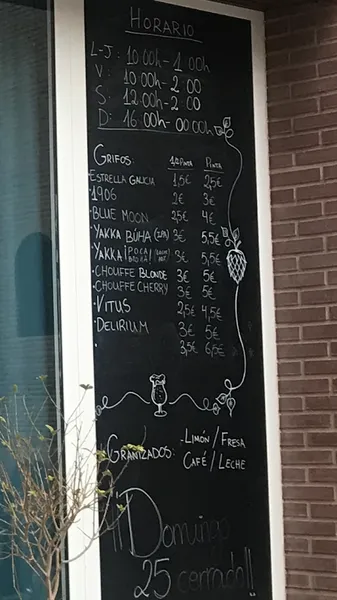 HORARIO
L-J: 10:00h - 1:00h
V: 10:00h - 2:00
S: 12:00h - 2:00
D: 16:00h - 00:00h
GRIFOS: 1/2 PINTA PINTA
ESTRELLA GALICIA 1,5€ 2,5€
·1906 2€ 3€
·BLUE MOON 2,5€ 4€
·YAKKA BÚHA (IPA) 3€ 5,5€
·YAKKA 3€ 5,5€
·CHOUFFE BLONDE 3€ 5€
·CHOUFFE CHERRY 3€ 5€
·VITUS 2,5€ 4,5€
·DELIRIUM 3€ 5€
· 3,5€ 6,5€
·GRANIZADOS: -LIMÓN / FRESA
CAFÉ / LECHE
¡¡Domingo
25 cerrado!!